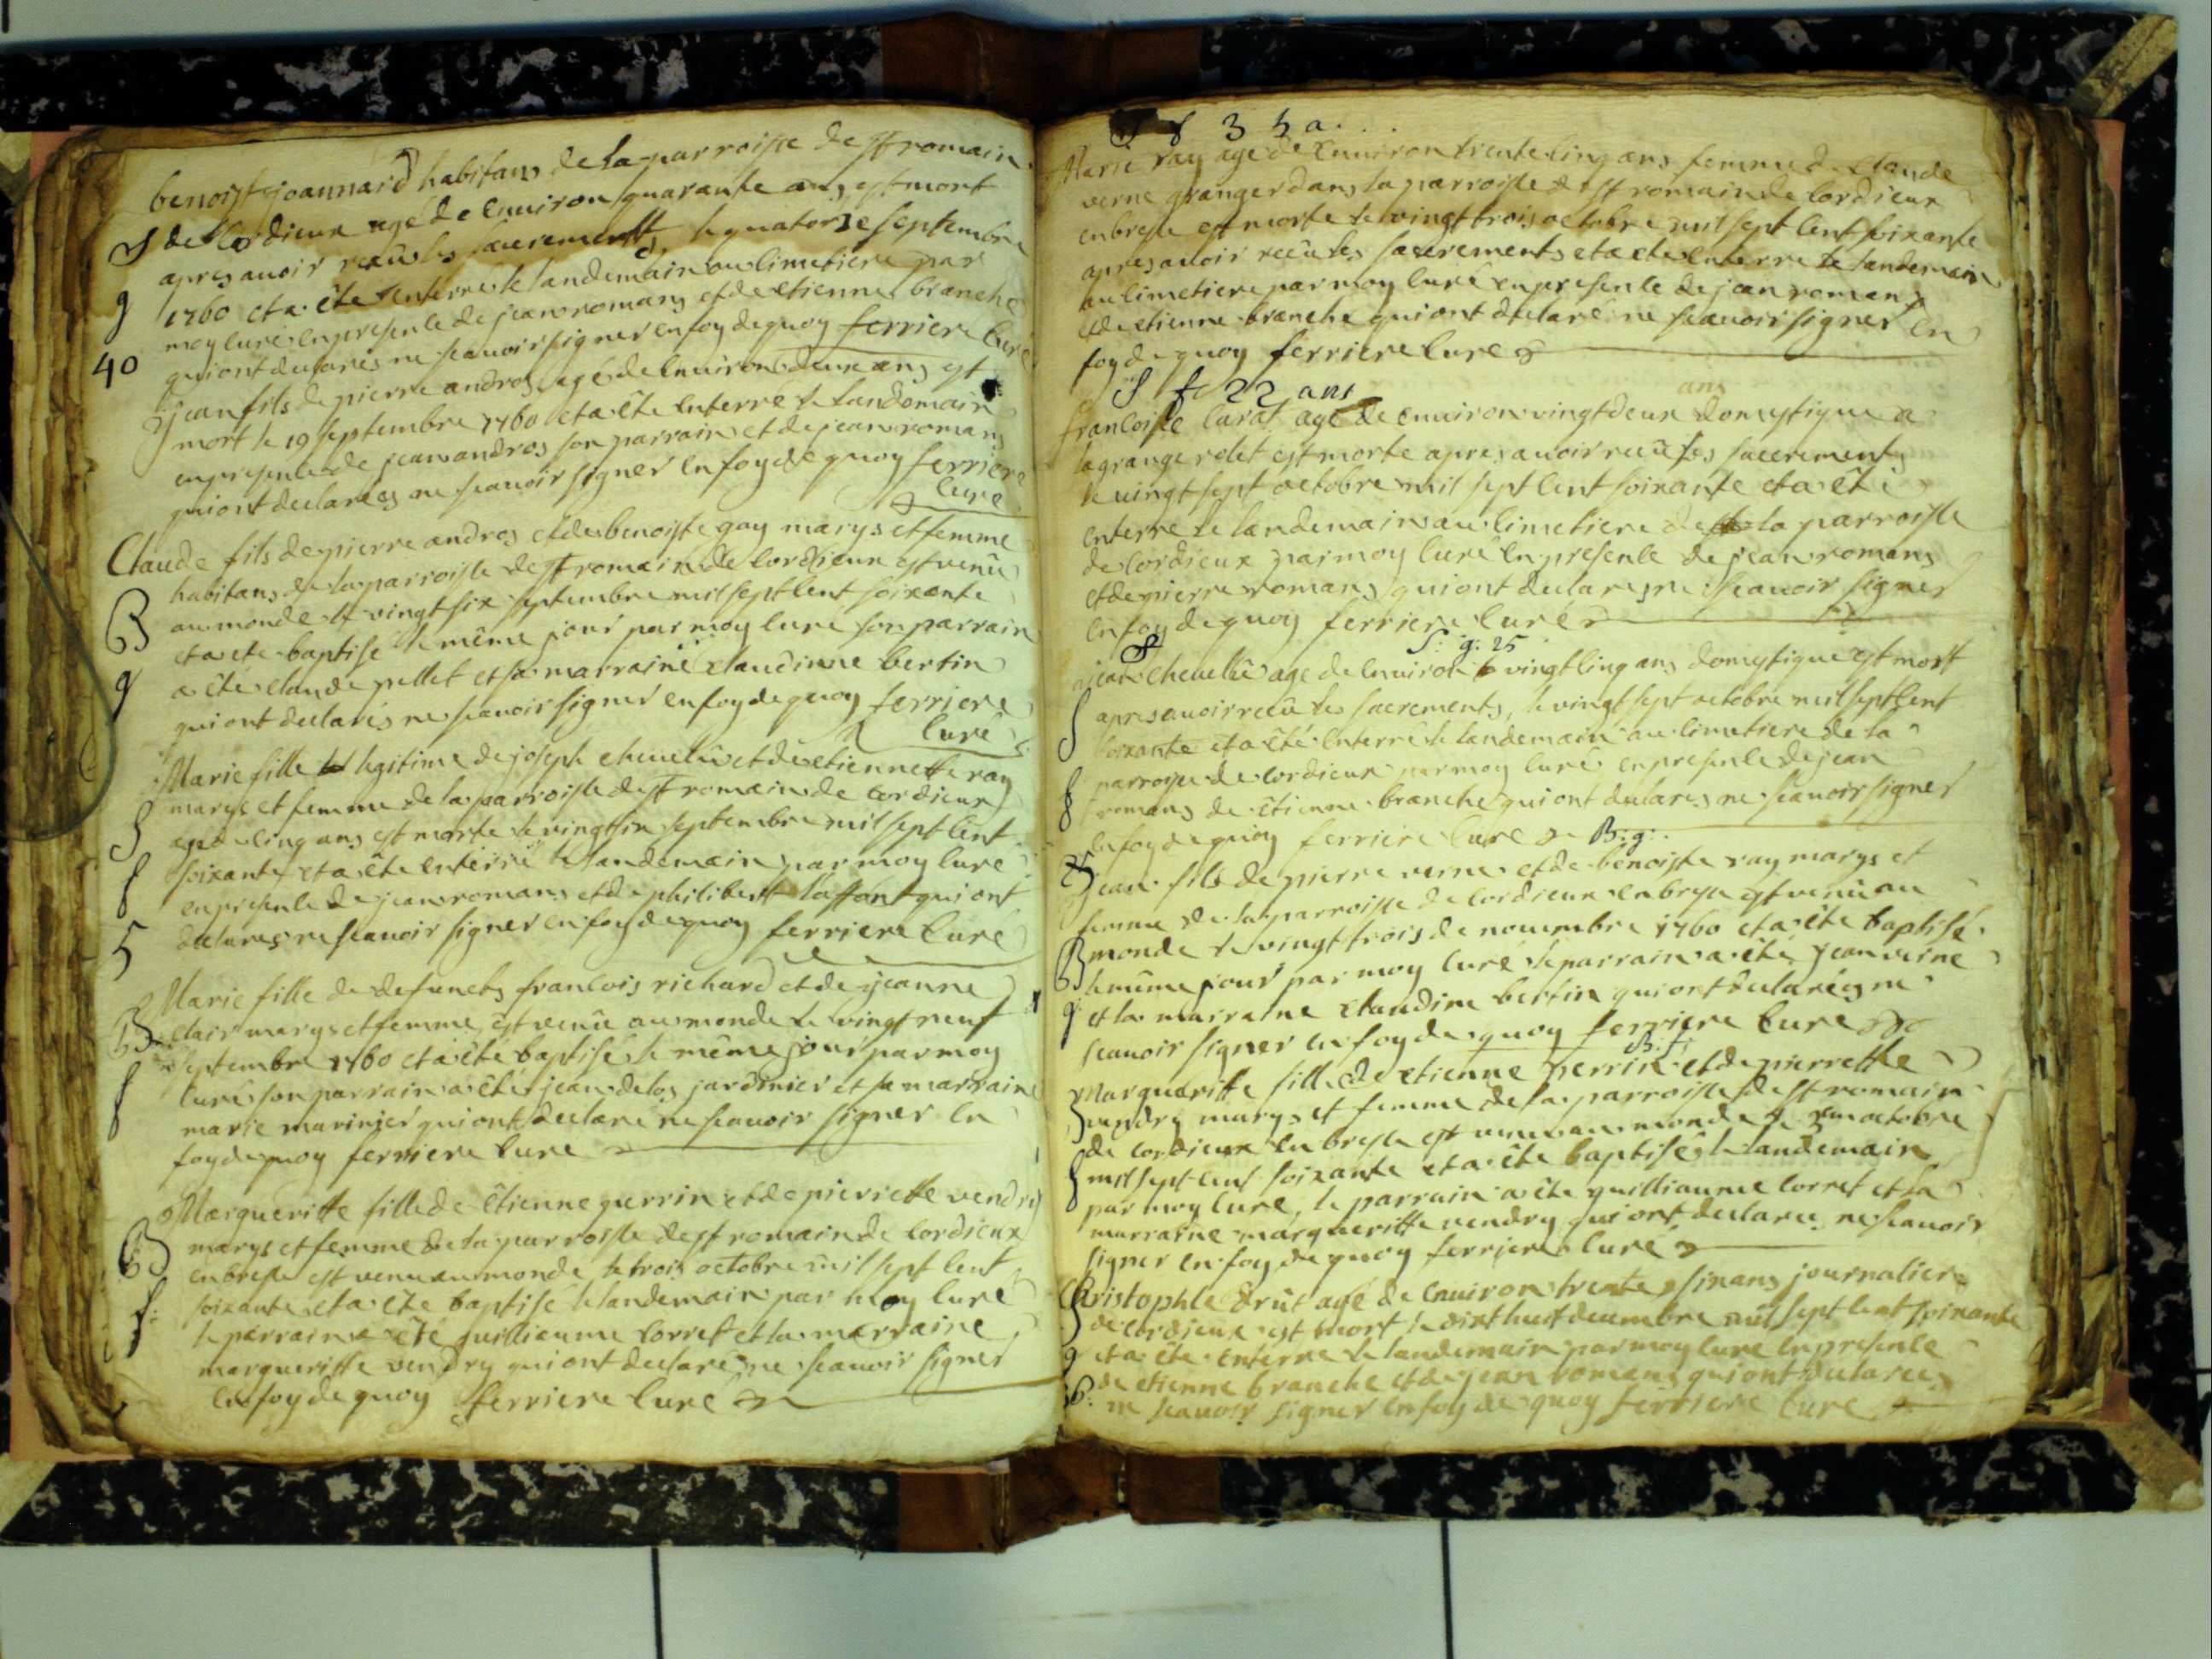 benoist joannard habitans de la parroisse de st romain
S de Cordieux agé de environ quarante ans est mort
apres auoir reçu les sacrements le quatorze septembre
g 1760 et a été enterré le landemain au cimetiere par
moy curé en presence de jean romans et de etienne branche
40 qui ont declarés ne scauoir signer en foy de quoy ferriere curé
jean fils de pierre andros agé de enuiron deux ans est
mort le 19 septembre 1760 et a été enterré le landemain
en presence de jean andros son parrain et de jean romans
qui ont declarées ne scauoir signer en foy de quoy ferriere
curé
Claude fils de pierre andros et de benoiste gay marys et femme
habitans de la parroisse de st romain de cordieux est venû
B au monde le vingt six septembre mil sept cent soixante
et a été baptisé le même jour par moy curé son parrain
g a été claude pellet et sa marraine claudinne bertin
qui ont declarés ne scauoir signer en foy de quoy ferriere
curé
Marie fille legitime de joseph cheuelu et de etiennette ray
marys et femme de la parroisse de st romain de cordieux
S agé de cinq ans est morte le vingt six septembre mil sept cent
soixante et a été enterré le landemain par moy curé
f en presence de jean romans et de philibert laffont qui ont
5 declarés ne scauoir signer en foy de quoy ferriere curé
Marie fille de defuncts francois richard et de jeanne
B clair marys et femme est venûe au monde le vingt neuf
septembre 1760 et a été baptisé le même jour par moy
f curé son parrain a été jean delos jardinier et sa marraine
marie marinier qui ont declaré ne scauoir signer en
foy de quoy ferriere curé
Margueritte fille de étienne perrin et de pierrette vendry
B marys et femme de la parroisse de st romain de cordieux
en bresse est venu au monde le trois octobre mil sept cent
f: soixante et a été baptisé le landemain par moy curé
le parrain a été guilliaume corret et la marraine
margueritte vendry qui ont declaré ne scauoir signer
en foy de quoy ferriere curé
S f 35 a...
Marie ray agé de enuiron trente cinq ans femme de claude
verne granger dans la parroisse de st romain de cordieux
en bresse est morte le vingt trois octobre mil sept cent soixante
apres auoir recû les sacrements et a été enterré le landemain
au cimetiere par moy curé en presence de jean romans
et de etienne branche qui ont declaré ne scauoir signer en
foy de quoy ferriere curé
S f 22 ans
ans
francoise carat agé de enuiron vingt deux domestique a
la grange rolet est morte apres auoir recû ses sacrements
le vingt sept octobre mil sept cent soixante et a été
enterré le landemain au cimetiere de la parroisse
de cordieux par moy curé en presence de jean romans
et de pierre romans qui ont declarés ne scauoir signer
en foy de quoy ferriere curé
S: g: 25
jean cheuellu agé de enuiron vingt cinq ans domestique est mort
S apres auoir recû les sacrements, le vingt sept octobre mil sept cent
soixante et a été enterré le landemain au cimetiere de la
parroisse de cordieux par moy curé en presence de jean
romans de étienne branche qui ont declarés ne scauoir signer
en foy de quoy ferriere curé B: g:
jean fils de pierre verne et de benoiste ray marys et
femme de la parroisse de cordieux en bresse est venû au
B monde le vingt trois de nouembre 1760 et a été baptisé
le même jour par moy curé le parrain a été jean verne
g et la marraine claudine bertin qui ont declarés ne
scauoir signer en foy de quoy ferriere curé
B: f:
Margueritte fille de etienne perrin et de pierrette
vendry marys et femme de la parroisse de st romain
de cordieux en bresse est venu au monde le 3 octobre
f mil sept cent soixante et a été baptisé le landemain
par moy curé, le parrain a été guilliaume corret et la
marraine margueritte vendry qui ont declaré ne scauoir
signer en foy de quoy ferriere curé
Christophle drût agé de enuiron trente six ans journalier
de cordieux est mort le dixt huit decembre mil sept cent soixante
g et a été enterré le landemain par moy curé en presence
de etienne branche et de jean romans qui ont declarées
ne scauoir signer en foy de quoy ferriere curé